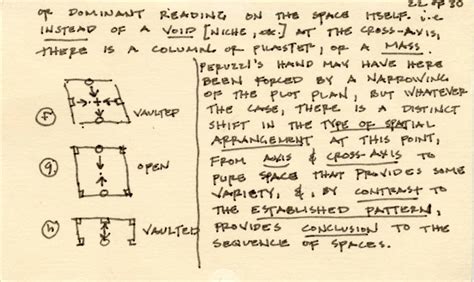 22 of 30
or dominant reading on the space itself. i.e
instead of a void [niche, etc.] at the cross-axis,
there is a column or pilaster, or a mass.
f. vaulted
g. open
h. vaulted
Peruzzi's hand may have here
been forced by a narrowing
of the plot plan, but whatever
the case, there is a distinct
shift in the type of spatial
arrangement at this point,
from axis & cross-axis to
pure space that provides some
variety, &, by contrast to
the established pattern,
provides conclusion to the
sequence of spaces.